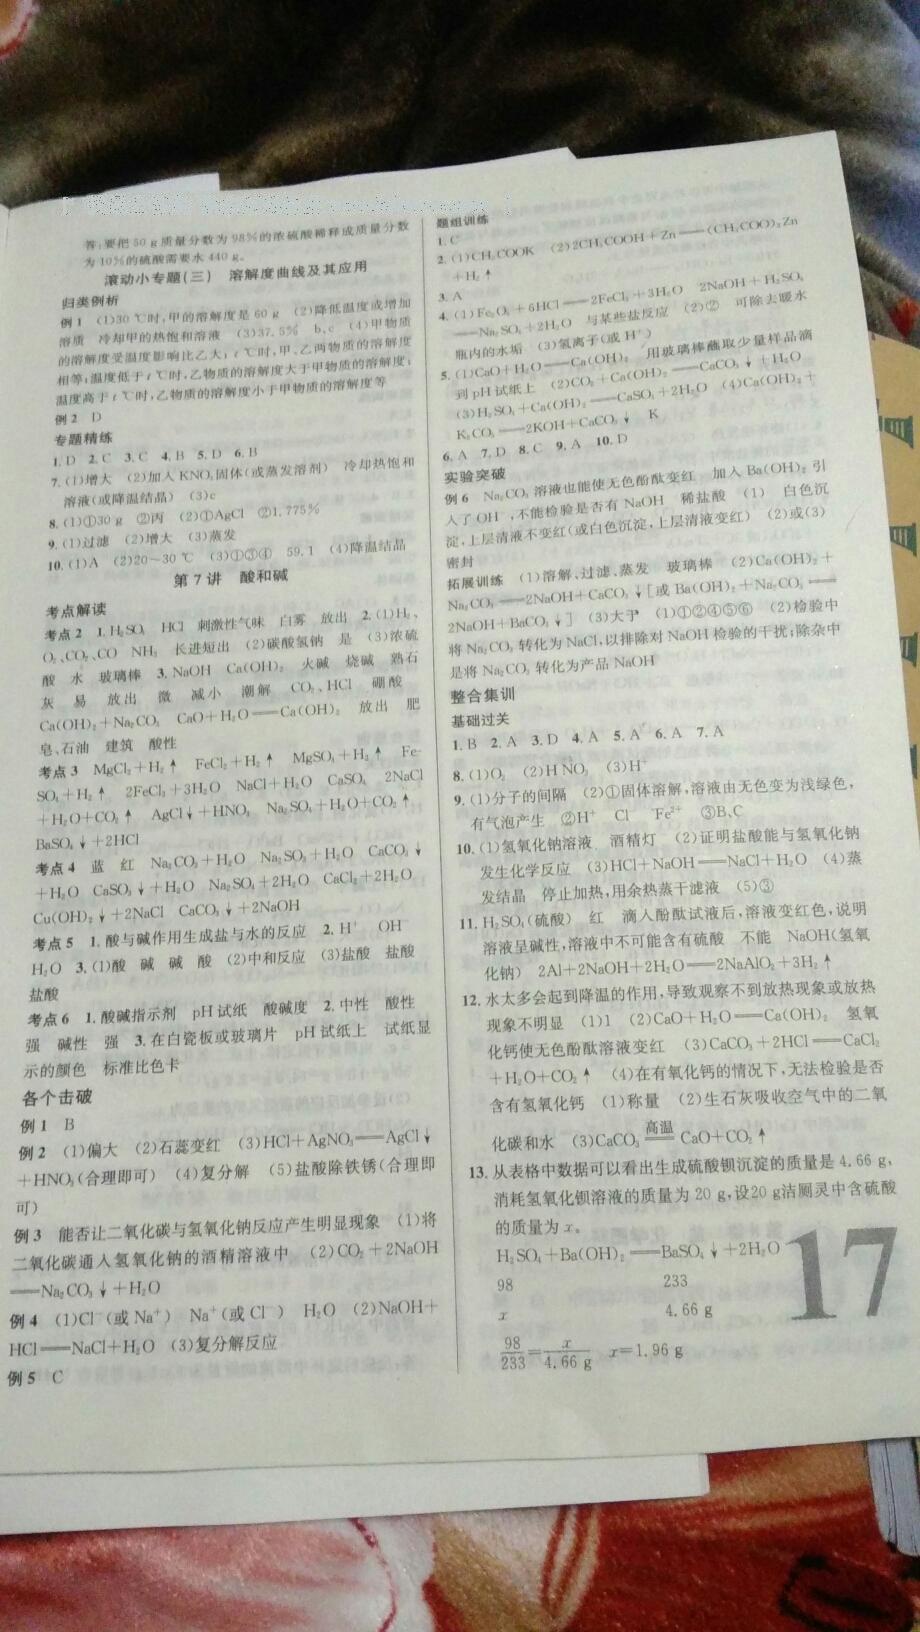 答:要把50 g质量分数为98%的浓硫酸稀释成质量分数
为10%的硫酸需要水440 g。
滚动小专题(三) 溶解度曲线及其应用
归类例析
例1 (1)30℃时,甲的溶解度是60 g (2)降低温度或增加
溶质 冷却甲的热饱和溶液 (3)37.5% b、c (4)甲物质
的溶解度受温度影响比乙大;t℃时,甲、乙两物质的溶解度
相等;温度低于t℃时,乙物质的溶解度大于甲物质的溶解度;
温度高于t℃时,乙物质的溶解度小于甲物质的溶解度等
例2 D
专题精练
1. D 2. C 3. C 4. B 5. D 6. B
7. (1)增大 (2)加入KNO₃固体(或蒸发溶剂) 冷却热饱和
溶液(或降温结晶) (3)c
8. (1)①30 g ②丙 (2)①AgCl ②1.775%
9. (1)过滤 (2)增大 (3)蒸发
10. (1)A (2)20～30℃ (3)①③④ 59.1 (4)降温结晶
第7讲 酸和碱
考点解读
考点2 1. H₂SO₄ HCl 刺激性气味 白雾 放出 2. (1)H₂、
O₂、CO₂、CO NH₃ 长进短出 (2)碳酸氢钠 是 (3)浓硫
酸 水 玻璃棒 3. NaOH Ca(OH)₂ 火碱 烧碱 熟石
灰 易 放出 微 减小 潮解 CO₂、HCl 硼酸
Ca(OH)₂+Na₂CO₃ CaO+H₂O══Ca(OH)₂ 放出 肥
皂、石油 建筑 酸性
考点3 MgCl₂+H₂↑ FeCl₂+H₂↑ MgSO₄+H₂↑ Fe-
SO₄+H₂↑ 2FeCl₃+3H₂O NaCl+H₂O CaSO₄ 2NaCl
+H₂O+CO₂↑ AgCl↓+HNO₃ Na₂SO₄+H₂O+CO₂↑
BaSO₄↓+2HCl
考点4 蓝 红 Na₂CO₃+H₂O Na₂SO₃+H₂O CaCO₃↓
+H₂O CaSO₃↓+H₂O Na₂SO₄+2H₂O CaCl₂+2H₂O
Cu(OH)₂↓+2NaCl CaCO₃↓+2NaOH
考点5 1. 酸与碱作用生成盐与水的反应 2. H⁺ OH⁻
H₂O 3. (1)酸 碱 碱 酸 (2)中和反应 (3)盐酸 盐酸
盐酸
考点6 1. 酸碱指示剂 pH试纸 酸碱度 2. 中性 酸性
强 碱性 强 3. 在白瓷板或玻璃片 pH试纸上 试纸显
示的颜色 标准比色卡
各个击破
例1 B
例2 (1)偏大 (2)石蕊变红 (3)HCl+AgNO₃══AgCl↓
+HNO₃(合理即可) (4)复分解 (5)盐酸除铁锈(合理即
可)
例3 能否让二氧化碳与氢氧化钠反应产生明显现象 (1)将
二氧化碳通入氢氧化钠的酒精溶液中 (2)CO₂+2NaOH
══Na₂CO₃↓+H₂O
例4 (1)Cl⁻(或Na⁺) Na⁺(或Cl⁻) H₂O (2)NaOH+
HCl══NaCl+H₂O (3)复分解反应
例5 C
题组训练
1. C
2. (1)CH₃COOK (2)2CH₃COOH+Zn══(CH₃COO)₂Zn
+H₂↑
3. A
4. (1)Fe₂O₃+6HCl══2FeCl₃+3H₂O 2NaOH+H₂SO₄
══Na₂SO₄+2H₂O 与某些盐反应 (2)② 可除去暖水
瓶内的水垢 (3)氢离子(或H⁺)
5. (1)CaO+H₂O══Ca(OH)₂ 用玻璃棒蘸取少量样品滴
到pH试纸上 (2)CO₂+Ca(OH)₂══CaCO₃↓+H₂O
(3)H₂SO₄+Ca(OH)₂══CaSO₄+2H₂O (4)Ca(OH)₂+
K₂CO₃══2KOH+CaCO₃↓ K
6. A 7. D 8. C 9. A 10. D
实验突破
例6 Na₂CO₃溶液也能使无色酚酞变红 加入Ba(OH)₂引
入了OH⁻,不能检验是否有NaOH 稀盐酸 (1) 白色沉
淀,上层清液不变红(或白色沉淀,上层清液变红) (2)或(3)
密封
拓展训练 (1)溶解、过滤、蒸发 玻璃棒 (2)Ca(OH)₂+
Na₂CO₃══2NaOH+CaCO₃↓[或Ba(OH)₂+Na₂CO₃══
2NaOH+BaCO₃↓] (3)大于 (1)①②④⑤⑥ (2)检验中
将Na₂CO₃转化为NaCl,以排除对NaOH检验的干扰;除杂中
是将Na₂CO₃转化为产品NaOH
整合集训
基础过关
1. B 2. A 3. D 4. A 5. A 6. A 7. A
8. (1)O₂ (2)HNO₃ (3)H⁺
9. (1)分子的间隔 (2)①固体溶解,溶液由无色变为浅绿色,
有气泡产生 ②H⁺ Cl Fe²⁺ ③B、C
10. (1)氢氧化钠溶液 酒精灯 (2)证明盐酸能与氢氧化钠
发生化学反应 (3)HCl+NaOH══NaCl+H₂O (4)蒸
发结晶 停止加热,用余热蒸干滤液 (5)③
11. H₂SO₄(硫酸) 红 滴入酚酞试液后,溶液变红色,说明
溶液呈碱性,溶液中不可能含有硫酸 不能 NaOH(氢氧
化钠) 2Al+2NaOH+2H₂O══2NaAlO₂+3H₂↑
12. 水太多会起到降温的作用,导致观察不到放热现象或放热
现象不明显 (1)1 (2)CaO+H₂O══Ca(OH)₂ 氢氧
化钙使无色酚酞溶液变红 (3)CaCO₃+2HCl══CaCl₂
+H₂O+CO₂↑ (4)在有氧化钙的情况下,无法检验是否
含有氢氧化钙 (1)称量 (2)生石灰吸收空气中的二氧
化碳和水 (3)CaCO₃ 高温══ CaO+CO₂↑
13. 从表格中数据可以看出生成硫酸钡沉淀的质量是4.66 g,
消耗氢氧化钡溶液的质量为20 g,设20 g洁厕灵中含硫酸
的质量为x。
H₂SO₄+Ba(OH)₂══BaSO₄↓+2H₂O
98 233
x 4.66 g
98/233=x/4.66 g x=1.96 g
17